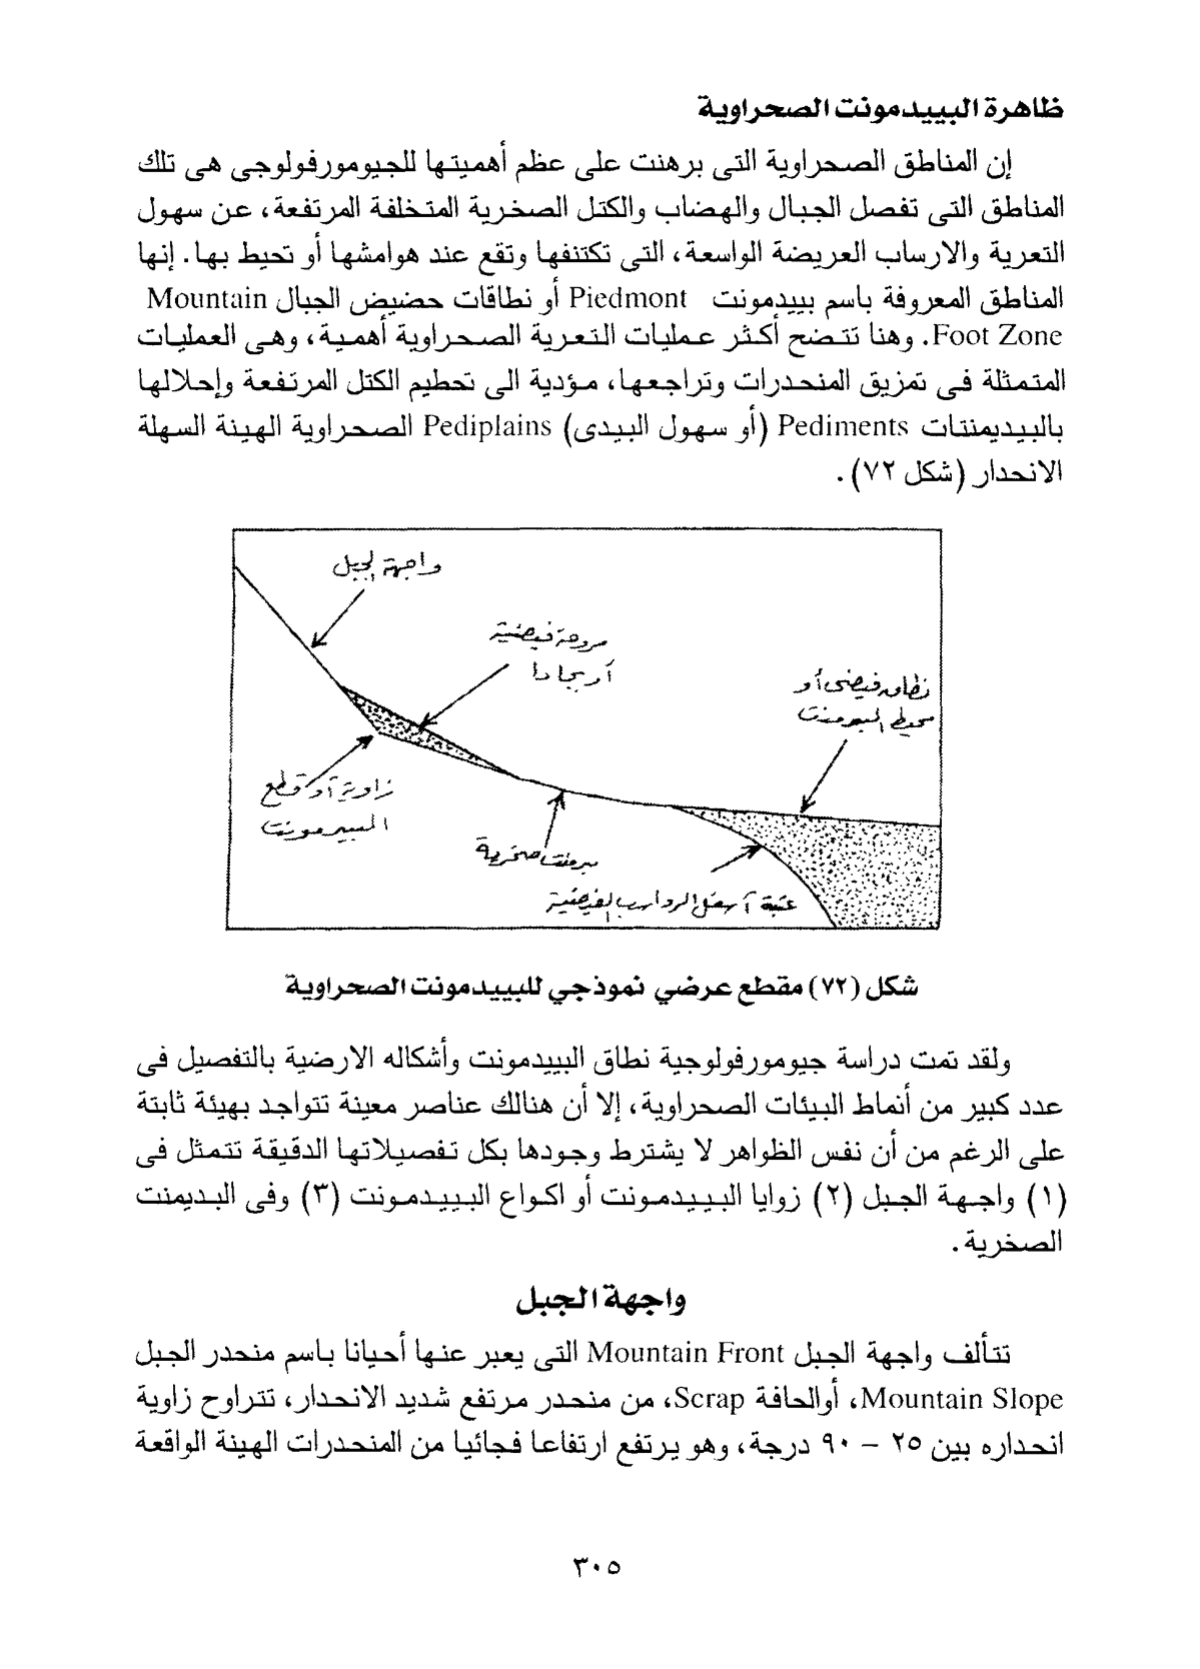 ظاهرة البييدمونت الصحراوية
إن المناطق الصحراوية التى برهنت على عظم أهميتها للجيومورفولوجى هى تلك
المناطق التى تفصل الجبال والهضاب والكتل الصخرية المتخلفة المرتفعة، عن سهول
التعرية والارساب العريضة الواسعة، التى تكتنفها وتقع عند هوامشها أو تحيط بها. إنها
المناطق المعروفة باسم بييدمونت Piedmont أو نطاقات حضيض الجبال Mountain
Foot Zone. وهنا تتضح أكثر عمليات التعرية الصحراوية أهمية، وهى العمليات
المتمثلة فى تمزيق المنحدرات وتراجعها، مؤدية الى تحطيم الكتل المرتفعة وإحلالها
بالبيديمنتات Pediments (أو سهول البيدى) Pediplains الصحراوية الهينة السهلة
الانحدار (شكل ٧٢).
واجهة الجبل
مروحة فيضية
أو بجادا
نطاق فيضى أو
محيط البيدمنت
زاوية أو قطع
البييدمونت
بيدمنت صخرية
عتبة أسفل الرواسب الفيضية
شكل (٧٢) مقطع عرضي نموذجي للبييدمونت الصحراوية
ولقد تمت دراسة جيومورفولوجية نطاق البييدمونت وأشكاله الارضية بالتفصيل فى
عدد كبير من أنماط البيئات الصحراوية، إلا أن هنالك عناصر معينة تتواجد بهيئة ثابتة
على الرغم من أن نفس الظواهر لا يشترط وجودها بكل تفصيلاتها الدقيقة تتمثل فى
(١) واجهة الجبل (٢) زوايا البييدمونت أو اكواع البييدمونت (٣) وفى البديمنت
الصخرية.
واجهة الجبل
تتألف واجهة الجبل Mountain Front التى يعبر عنها أحيانا باسم منحدر الجبل
Mountain Slope، أوالحافة Scrap، من منحدر مرتفع شديد الانحدار، تتراوح زاوية
انحداره بين ٢٥ – ٩٠ درجة، وهو يرتفع ارتفاعا فجائيا من المنحدرات الهينة الواقعة
٣٠٥